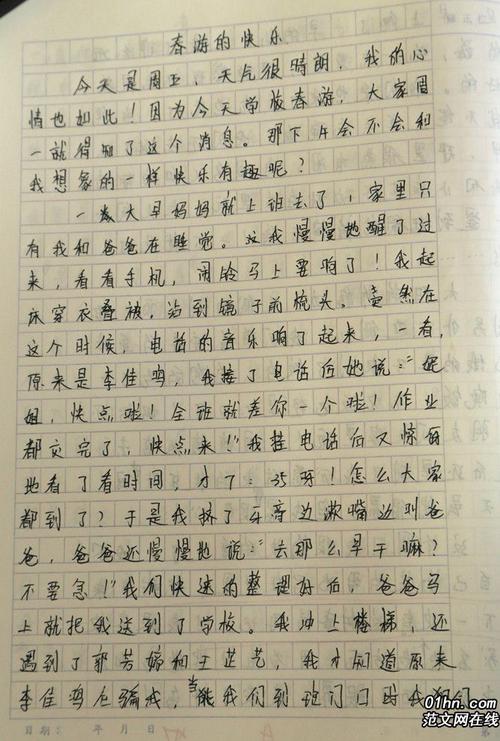 春游的快乐
今天是周五，天气很晴朗，我的心
情也如此！因为今天学校春游，大家周
一就得知了这个消息。那下午会不会和
我想象的一样快乐有趣呢？
一大早妈妈就上班去了，家里只
有我和爸爸在睡觉。我慢慢地醒了过
来，看看手机，闹铃马上要响了！我起
床穿衣叠被，站到镜子前梳头。竟然在
这个时候，电话的音乐响了起来，一看，
原来是李佳鸣，我接了电话后她说：“姐
姐，快点啦！全班就差你一个啦！作业
都交完了，快点来！”我挂电话后又惊讶
地看了看时间，才7：35呀！怎么大家
都到了？于是我挤了牙膏边漱嘴边叫爸
爸，爸爸还慢慢地说：“去那么早干嘛？
不要急！”我们快速的整理好后，爸爸马
上就把我送到了学校。我冲上楼梯，还
遇到了郭芳婷和王芷艺，我才知道原来
李佳鸣在骗我，当我们到班门口时我们
日期： 年 月 日
01hn.com
范文网在线